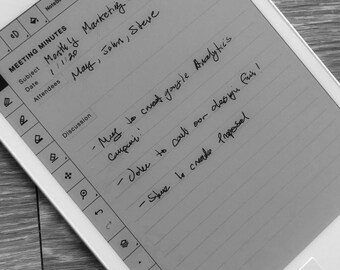 Notebook
MEETING MINUTES
Subject Monthly Marketing
Date 1/1/20
Attendees May, John, Steve
Discussion
- May to create google Analytics
- John to call our design firm!
- Steve to create Proposal